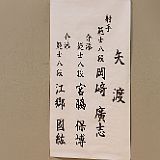 矢渡
射手
範士八段 岡崎廣志
介添
範士八段 宮脇保博
介添
範士八段 江郷國紘